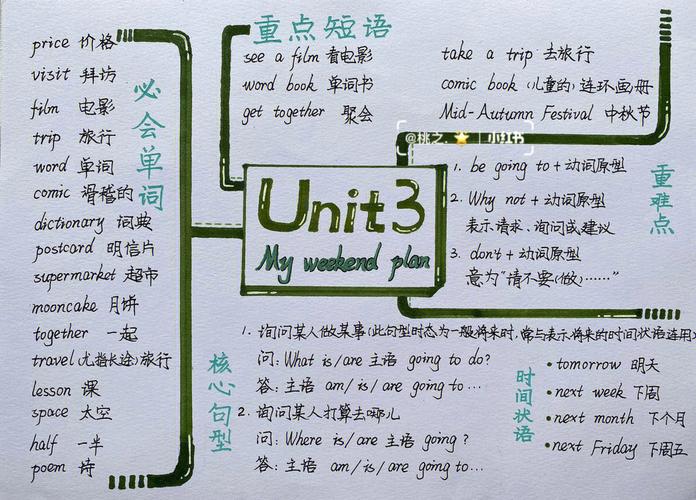 必会单词
price 价格
visit 拜访
film 电影
trip 旅行
word 单词
comic 滑稽的
dictionary 词典
postcard 明信片
supermarket 超市
mooncake 月饼
together 一起
travel (尤指长途) 旅行
lesson 课
space 太空
half 一半
poem 诗
重点短语
see a film 看电影
word book 单词书
get together 聚会
take a trip 去旅行
comic book (儿童的) 连环画册
Mid-Autumn Festival 中秋节
@桃之. 小红书
Unit3
My weekend plan
重难点
1. be going to + 动词原型
2. Why not + 动词原型
表示请求、询问或建议
3. don't + 动词原型
意为"请不要(做)……"
核心句型
1. 询问某人做某事(此句型时态为一般将来时,常与表示将来的时间状语连用)
问: What is/are 主语 going to do?
答: 主语 am/is/are going to…
2. 询问某人打算去哪儿
问: Where is/are 主语 going?
答: 主语 am/is/are going to…
时间状语
• tomorrow 明天
• next week 下周
• next month 下个月
• next Friday 下周五